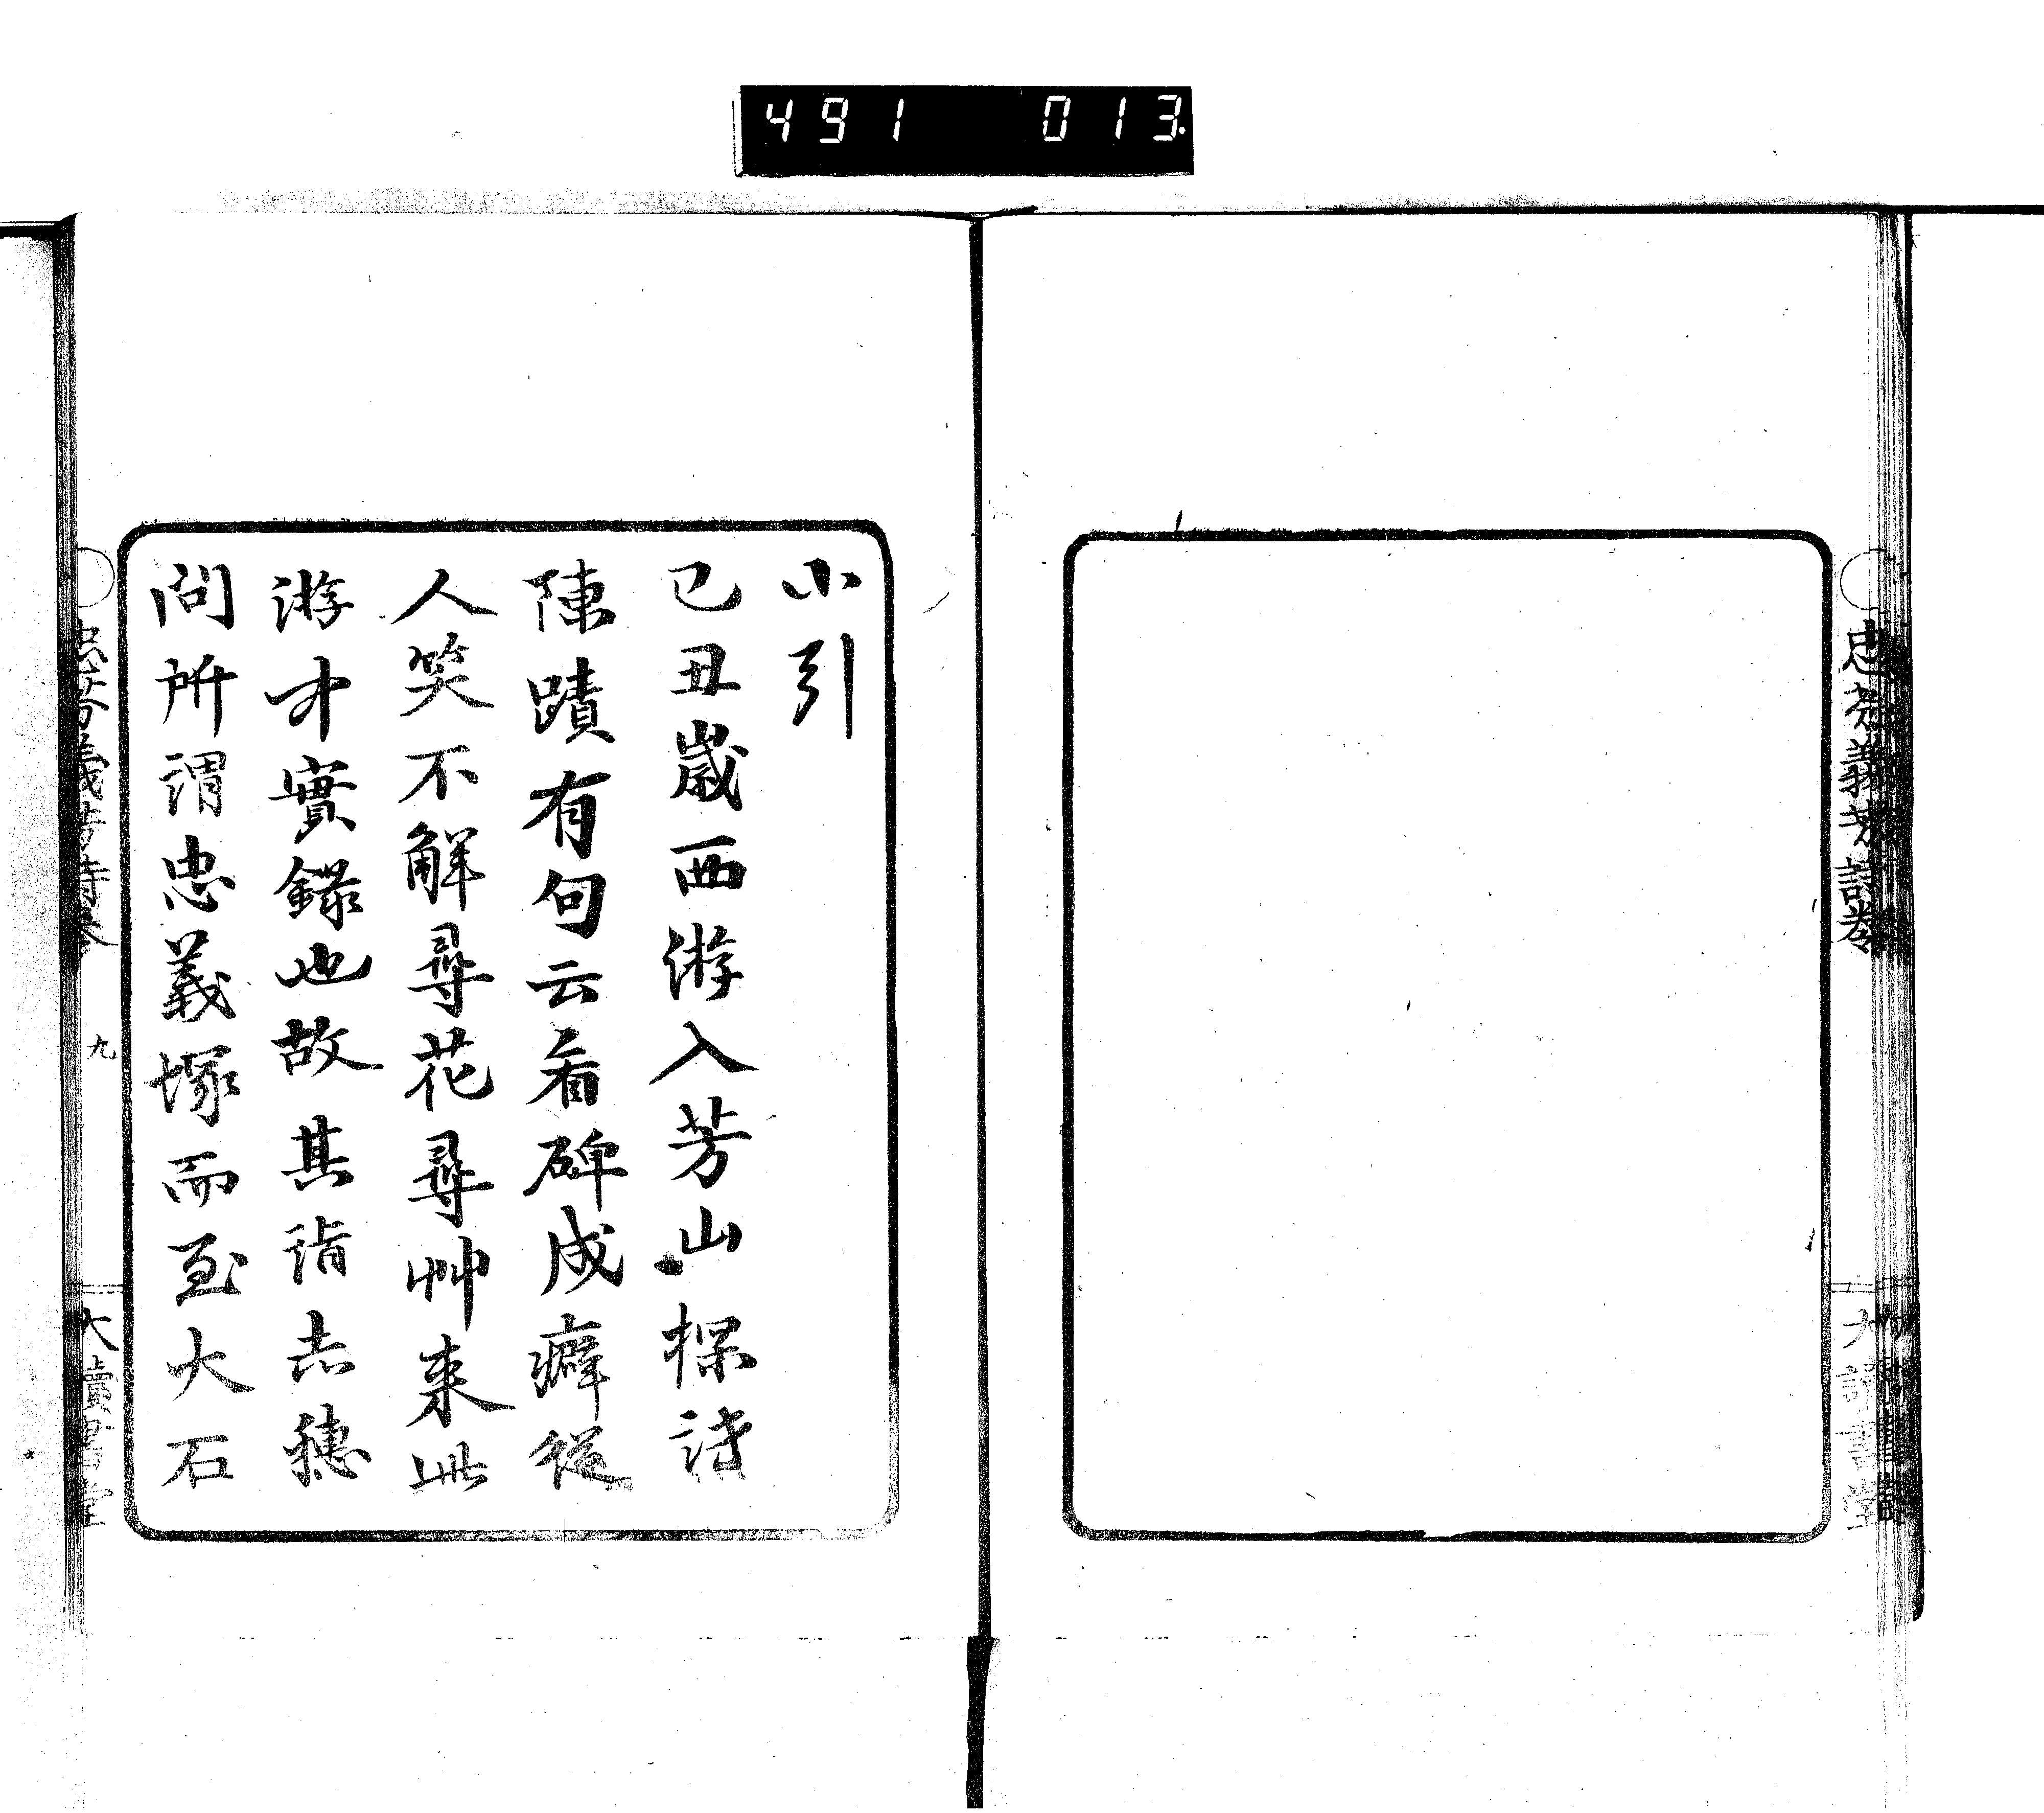 491 013
忠芬義芳詩卷
大讀書堂
小引
己丑歲西游入芳山探諸
陳蹟有句云看碑成癖從
人笑不解尋花尋艸來此
游才實錄也故其詣赤穗
問所謂忠義塚而至大石
忠芬義芳詩卷
九
大讀書堂